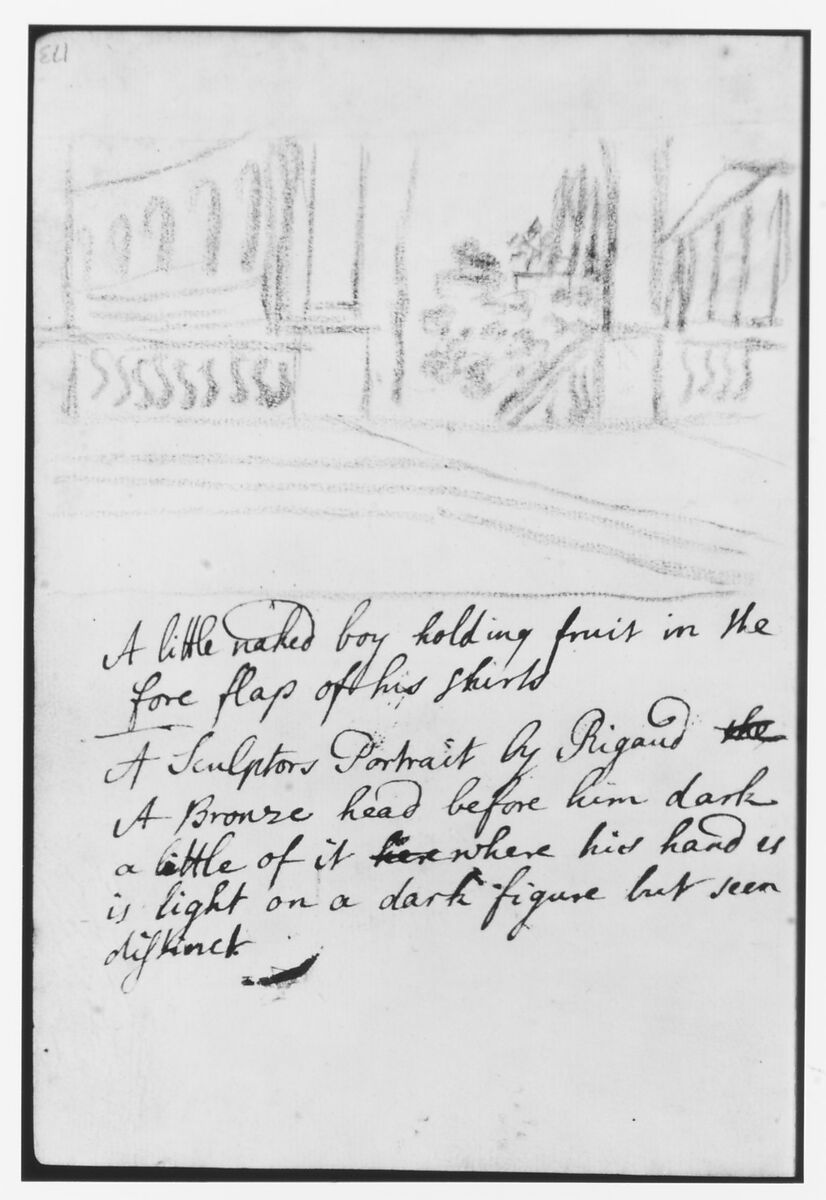 173
A little naked boy holding fruit in the
fore flap of his shirt
A Sculptors Portrait by Rigaud the
A Bronze head before him dark
a little of it here where his hand is
is light on a dark figure but seen
distinct